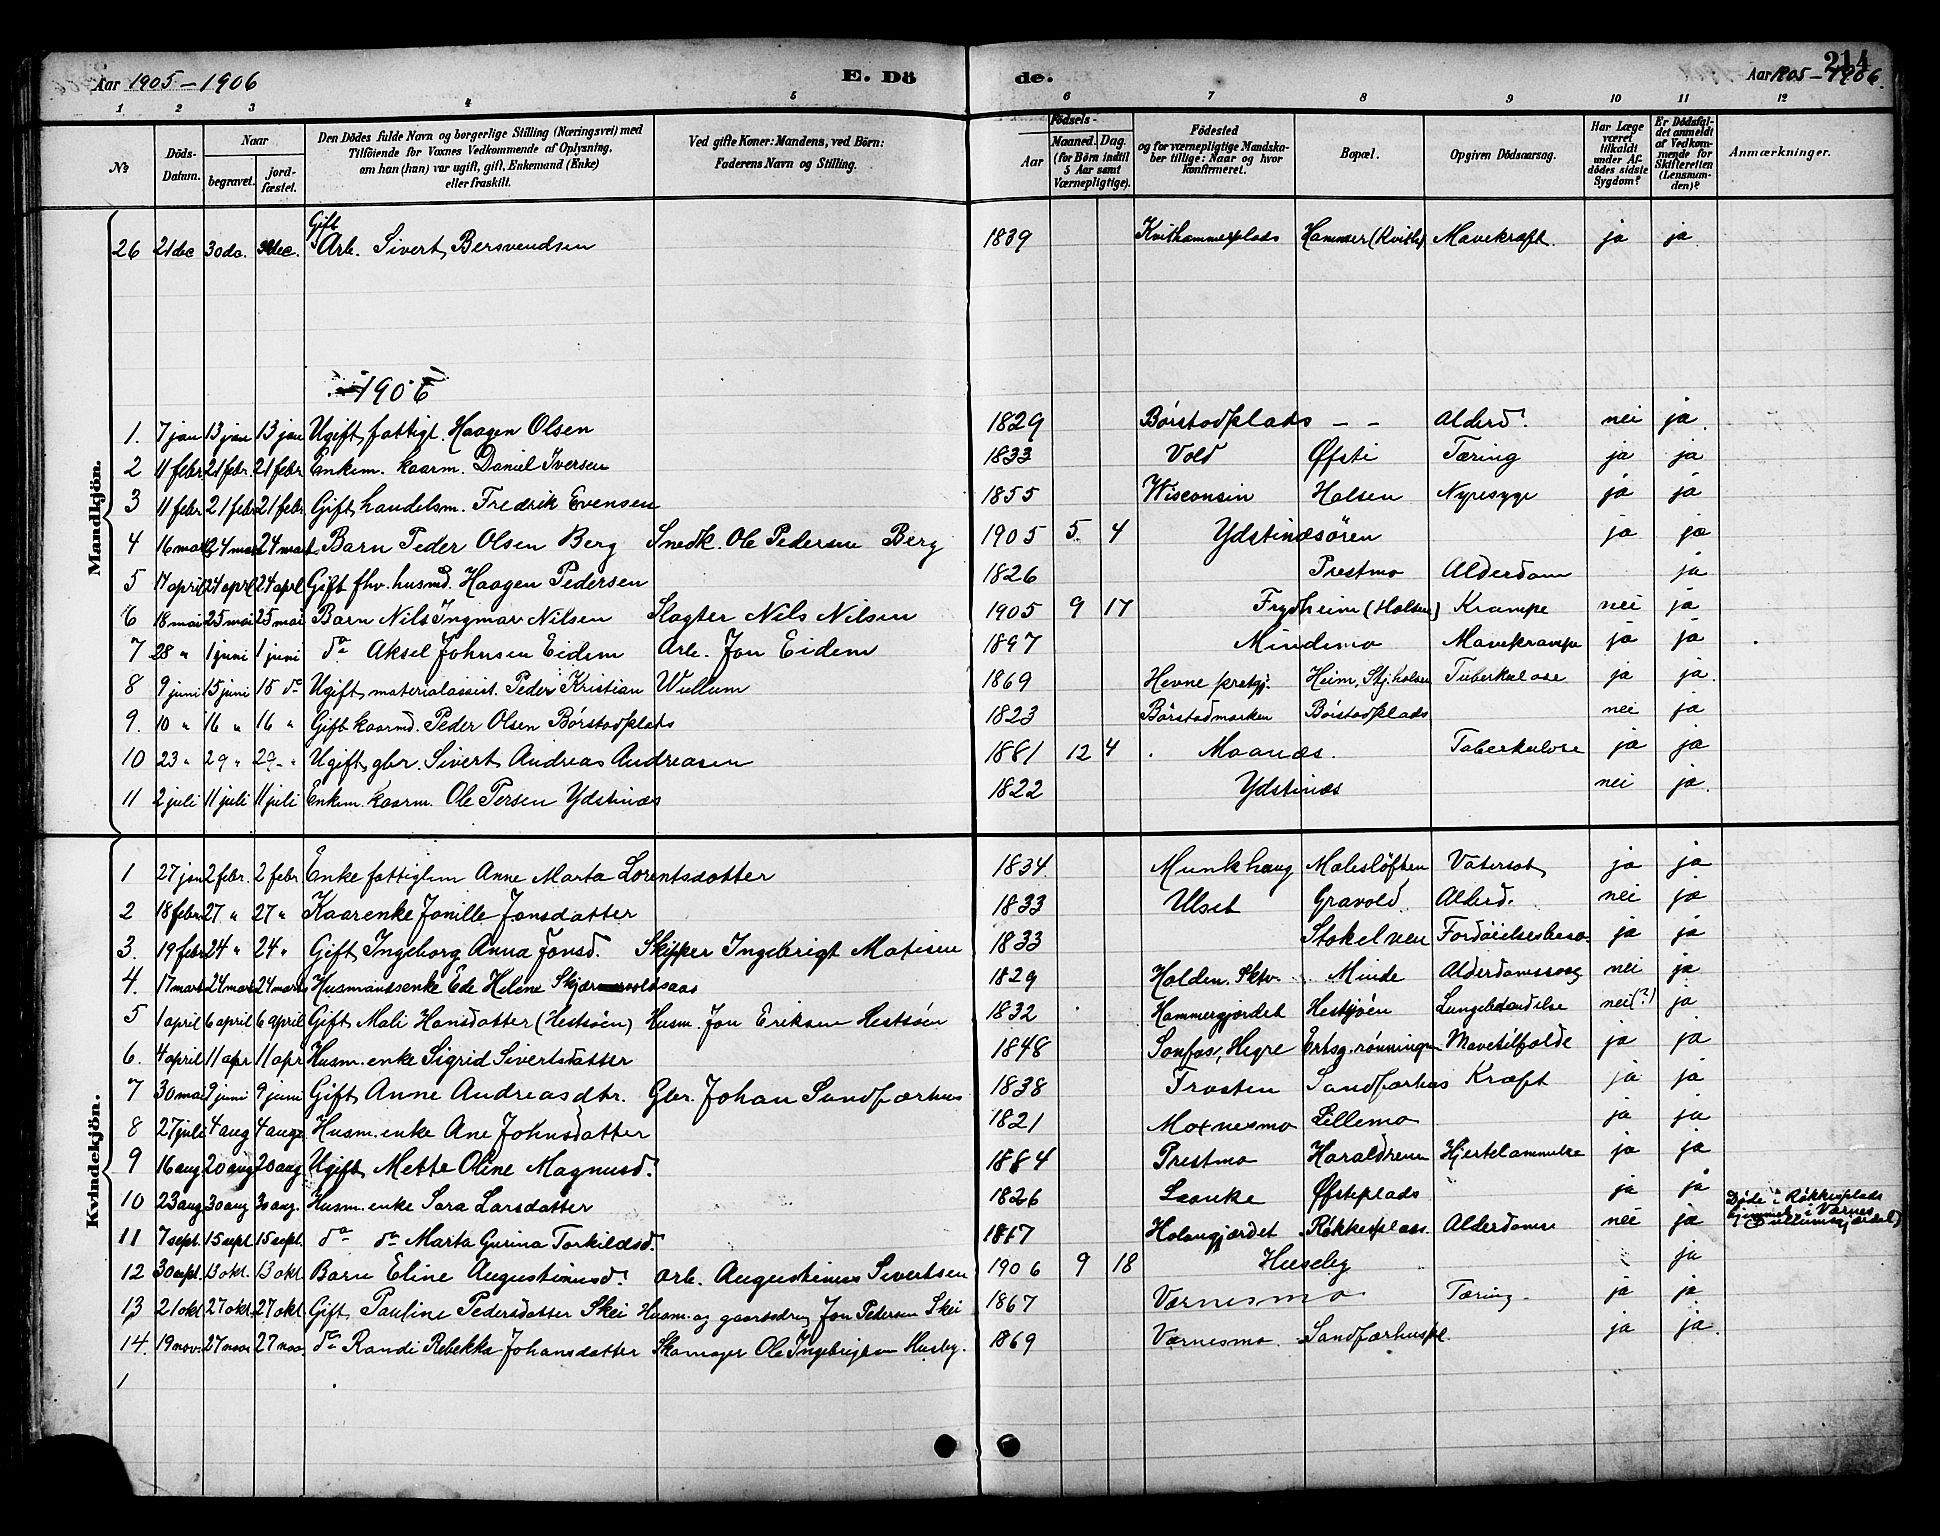 Aar 1905-1906 E. Dö de. 214 Aar 1905-1906.
1 2 3 4 5 6 7 8 9 10 11 12
№ Döds-Datum. Naar begravet. jordfæstet. Den Dödes fulde Navn og borgerlige Stilling (Næringsvei) med Tilföiende for Voxnes Vedkommende af Oplysning, om han (hun) var ugift, gift, Enkemand (Enke) eller fraskilt. Ved gifte Koner: Mandens, ved Börn: Faderens Navn og Stilling. Födsels- Aar Maaned. Dag. (for Börn indtil 5 Aar samt Værnepligtige). Födested og for værnepligtige Mandskaber tillige: Naar og hvor konfirmeret. Bopæl. Opgiven Dödsaarsag. Har Læge været tilkaldt under Afdödes sidste Sygdom? Er Dödsfaldet anmeldt af Vedkommende for Skifteretten (Lensmanden)? Anmærkninger.
Mandkjön.
26 21 dec 30 do. 30 dec. Gift Arb. Sivert Bersvendsen 1839 Kvithammerplads Hammer (Kvith) Mavekræft. ja ja
1906
1. 7 jan 13 jan 13 jan Ugift fattigl. Haagen Olsen 1829 Börstadplads — — Alderd. nei ja.
2 11 febr 21 febr. 21 febr Enkem. kaarm. Daniel Iversen 1833 Vold Øfsti Tæring ja ja
3 11 febr 21 febr 21 febr Gift handelsm. Fredrik Evensen 1855 Wisconsin Halsen Nyresyge ja ja
4 16 mar 24 mar 24 mart Barn Peder Olsen Berg Snedk. Ole Pedersen Berg 1905 5. 4 Ydstinæsören ja ja
5 17 april 24 aprl 24 aprl Gift fhv. husmd. Haagen Pedersen 1826 Prestmo Alderdom ja
6 18 mai 25 mai 25 mai Barn Nils Ingmar Nilsen Slagter Nils Nilsen 1905 9 17 Frydheim (Halsen) Krampe nei ja
7 28 " 1 juni 1 juni do Aksel Johnsen Eidem Arb. Jon Eidem 1897 Mindemo Mavekrampe ja ja
8 9 juni 15 juni 15 do Ugift materialassist. Peder Kristian Wullum 1869 Hevne prstgj. Heim, Stj.halsen Tuberkulose ja ja.
9. 10 " 16 " 16 " Gift kaarmd. Peder Olsen Börstadplads 1823 Börstadmarken Börstadplads nei ja
10 23 " 29 " 29 " Ugift gbr. Sivert Andreas Andreasen 1881 12 4 Maanæs. Tuberkulose ja ja
11 2 juli 11 juli 11 juli Enkm. kaarm. Ole Persen Ydstinæs 1822 Ydstinæs nei ja.
Kvindekjön.
1 27 jan 2 febr. 2 febr. Enke fattiglem Anne Marta Lorentsdatter 1834 Munkhaug Malesløften Vatersot ja ja
2 18 febr 27 " 27 " Kaarenke Jonille Jonsdatter 1833 Ulset Gravold Alderd. nei ja
3. 19 febr 24 " 24 " Gift Ingeborg Anna Jonsd. Skipper Ingebrigt Matisen 1833 Stokelven Fordöielsesbesv. ja ja
4. 17 mars 24 mars 24 mars Husmandsenke Ede Helene Skjærvoldsaas 1829 Holden. Sktv. Minde Alderdomssvag nei ja
5 1 april 6 april 6 april Gift Mali Hansdatter (Hestsöen) Husm. Jon Eriksen Hestsöen 1832 Hammergjerdet Hestsjöen Lungebetændelse nei(?) ja
6. 4 april 11 apr 11 apr Husm.enke Sigrid Sivertsdatter 1848 Sonfos, Hegre Ertsg.rönningen Mavetilfælde ja ja
7 30 mai 9 juni 9 juni Gift Anne Andreasdtr. Gbr. Johan Sandfærhus 1838 Trosten Sandfærhus Kræft ja ja
8 27 juli 4 aug 4 aug Husm.enke Ane Johnsdatter 1821 Moxnesmo Lillemo ja ja
9 16 aug 20 aug 20 aug Ugift Mette Oline Magnusd. 1884 Prestmo Haraldreina Hjertelammelse ja ja
10 23 aug 30 aug 30 aug. Husm.enke Sara Larsdatter 1826 Laanke Øfsteplads ja ja
11 7 sept. 15 sept 15 sept. do do Marta Gurina Torkildsd. 1817 Holangjærdet Røkkesplass. Alderdomse nei ja Døde i Røkkesplads hjemmeh. i Værnes
12 30 sept. 13 okt. 13 okt Barn Eline Augustinusd. Arb. Augustinus Sivertsen 1906 9 18 Husby ja
13 21 okt 27 okt. 27 okt. Gift Pauline Pedersdatter Skei Husm. og gaardsdreng Jon Pedersen Skei 1867 Værnesmo Tæring ja ja
14. 19 nov. 27 nov. 27 nov. do Randi Rebekka Johansdatter Skomager Ole Ingebrigtsen Husby. 1869 Værnesmo Sandfærhuspl. ja ja.
1